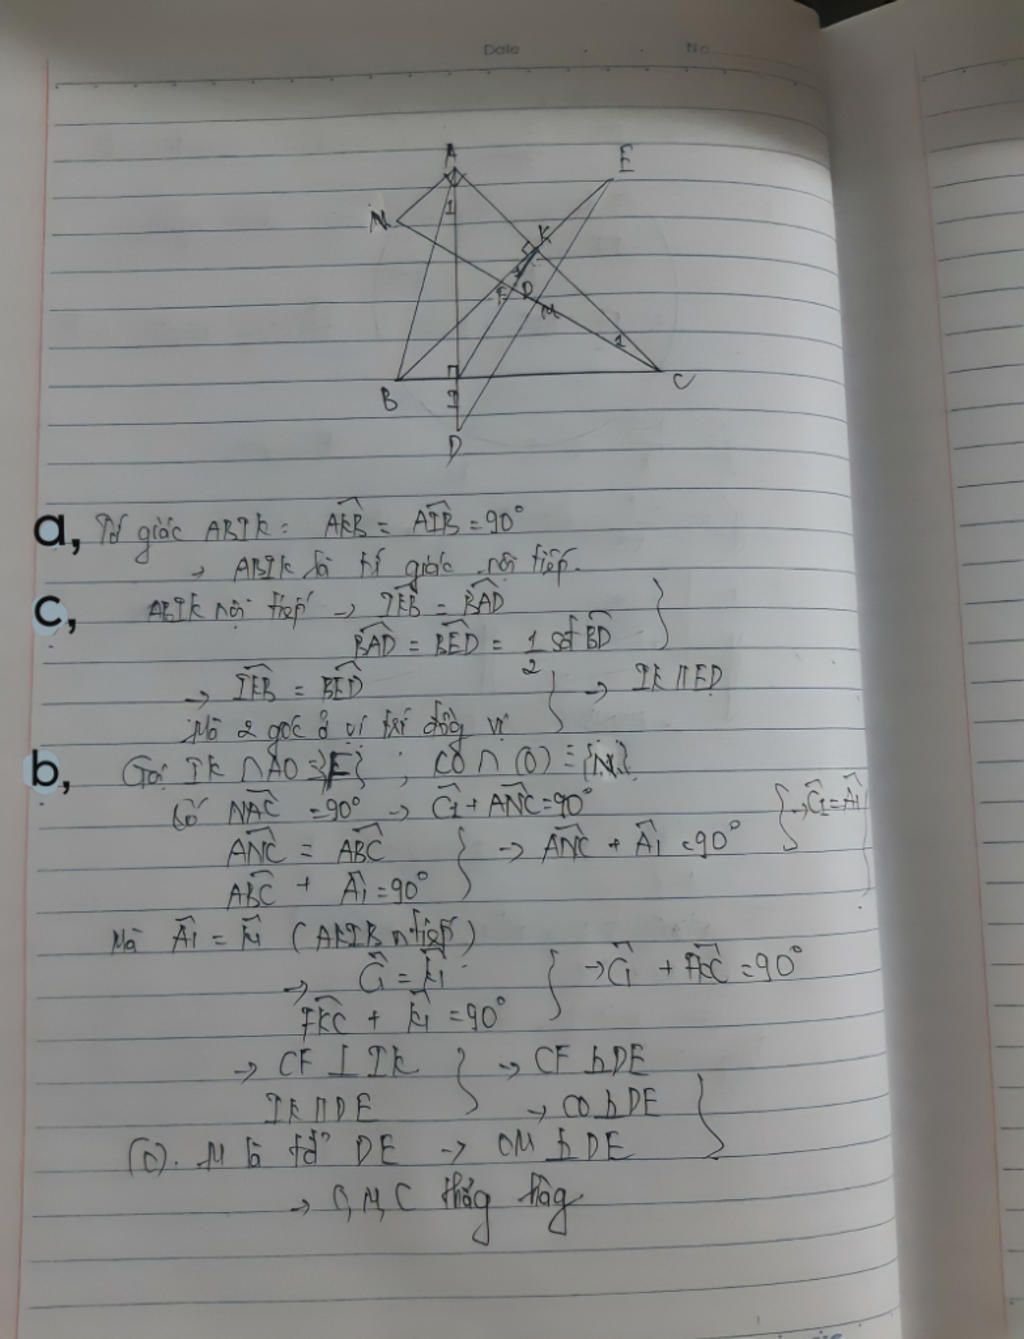 Date No
A
E
N
1
K
1
F
O
M
1
B
I
C
D
a, Tứ giác ABIK: AKB = AIB = 90°
→ ABIK là tứ giác nội tiếp.
c, ABIK nội tiếp → IKB = BAD
BAD = BED = 1/2 sđ BD
→ IKB = BED → IK // ED
Mà 2 góc ở vị trí đồng vị
b, Gọi IK ∩ AO = {F} ; CO ∩ (O) = {N}
Có NAC = 90° → C1 + ANC = 90° → C1 = A1
ANC = ABC → ANC + A1 = 90°
ABC + A1 = 90°
Mà A1 = K1 (AKIB n tiếp)
→ C1 = K1 → C1 + FKC = 90°
FKC + K1 = 90°
→ CF ⊥ IK → CF ⊥ DE
IK // DE → CO ⊥ DE
(O). M là tđ DE → OM ⊥ DE
→ O, M, C thẳg hàg